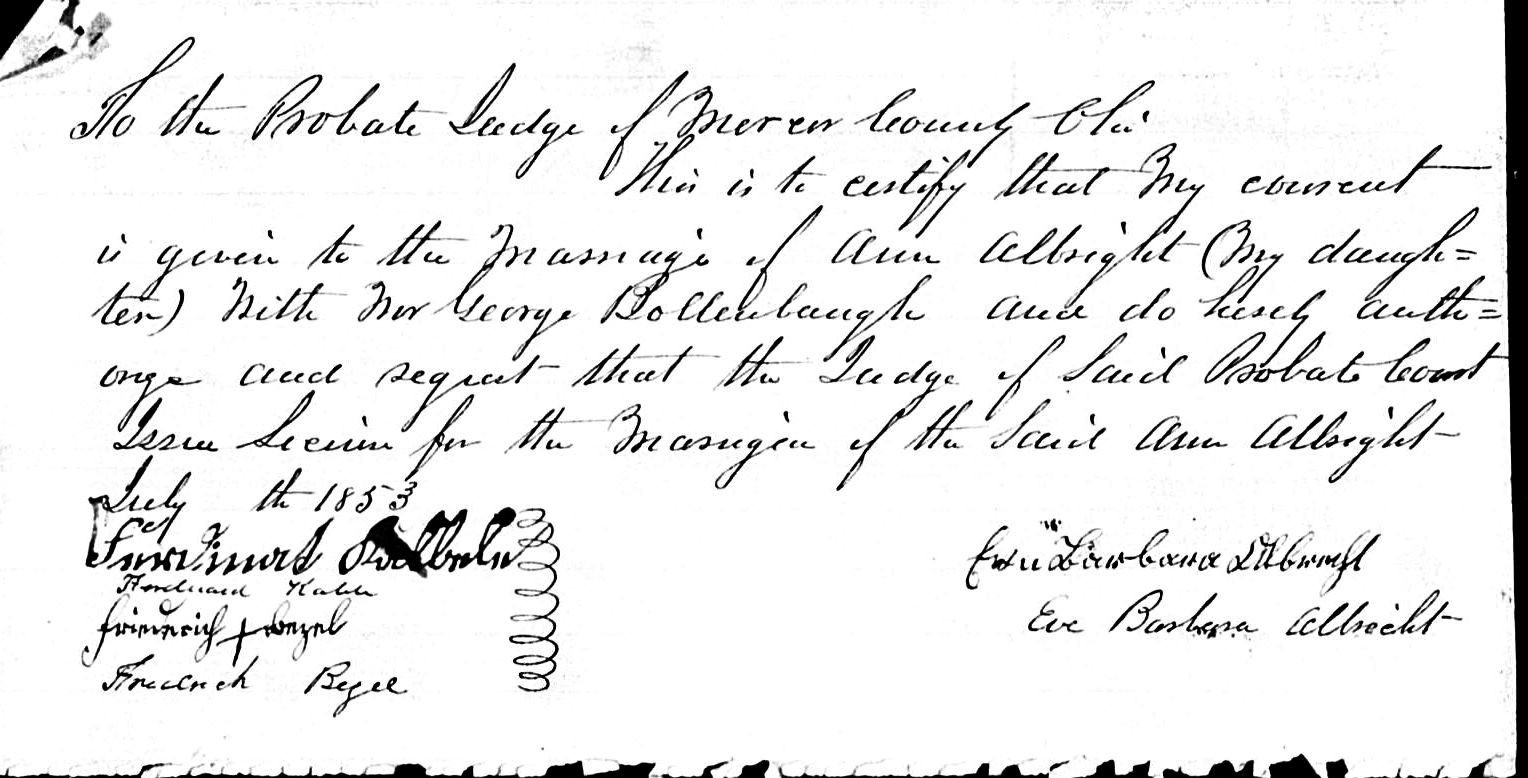 To the Probate Judge of Mercer County Ohio
This is to certify that My consent
is given to the Marriage of Ann Albright (My daugh=
ter) With Mr George Bollenbaugh and do hereby auth=
orize and request that the Judge of Said Probate Court
Issue License for the Marriage of the Said Ann Albright
July th 1853
Ferdinat
Eva Barbara Albrecht
Ferdinand Kable
Friederich + Bezel
Eve Barbara Albrecht
Fredrick Bezel